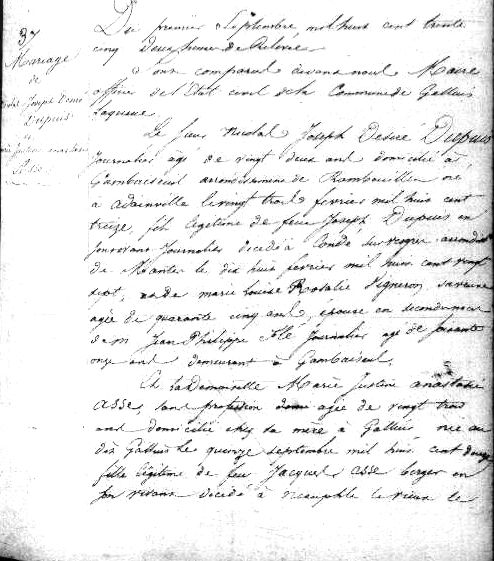 37
Mariage
de
Joseph Desiré
Dupuis
et
justine anastasie
Asse
Du premier Septembre mil huit cent trente
cinq deux heures de Relevée.
Sont comparus devant nous Maire
officier de l'Etat civil de la Commune de Galluis
Laqueue
Le Sieur Medal Joseph Desiré Dupuis
Journalier agé de vingt deux ans domicilié à
Gambaiseuil arrondissement de Rambouillet né
à adainville le vingt trois fevrier mil huit cent
treize, fils legitime de feu Joseph Dupuis en
son vivant Journalier decedé à Condé sur vesgre arrondist
de Mantes le dix huit fevrier mil huit cent vingt
sept, et de marie Louise Rosalie Vigneron, sa veuve
agée de quarante cinq ans, épouse en secondes noces
de Jean Philippe Journalier agé de soixante
onze ans demeurant à Gambaiseuil,
Et la Demoiselle Marie Justine anastasie
Asse, sans profession agée de vingt trois
ans domiciliée chez sa mère à Galluis née au
dit Galluis le quinze septembre mil huit cent douze
fille légitime de feu Jacques Asse berger en
son vivant decedé à neauphle le vieux le